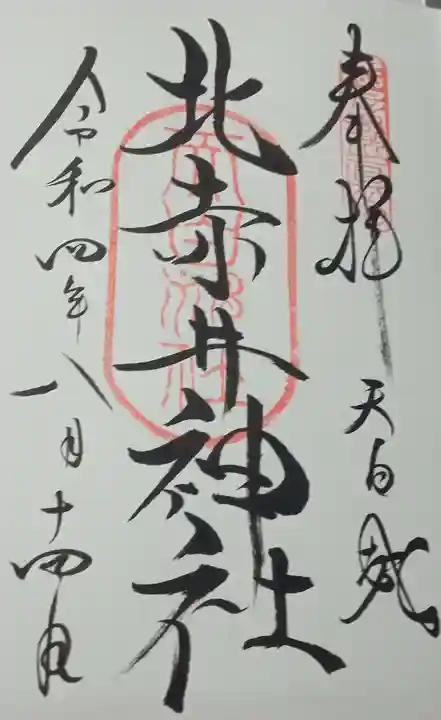 奉拝 天白城
北赤井神社
令和四年八月十四日